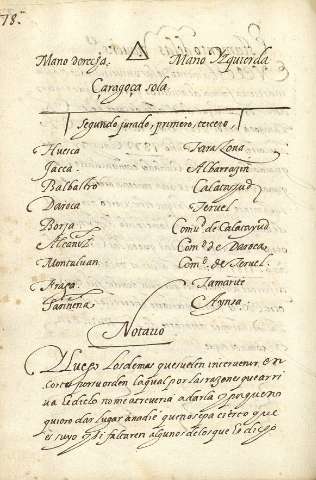 78.
Mano derecha. Mano Yzquierda
Çaragoça sola.
Segundo jurado, primero, tercero,
Huesca Taraçona
Jacca. Albarrazin
Balbastro Calatayud
Daroca Teruel.
Borja Comud de Calatayud
Alcañiz Comd de Daroca
Montaluan Comd. de Teruel.
Fraga Tamarite
Sariñena Aynsa
Notauo
Y luego los demas que suelen interuenir en
Cortes por su orden la qual por las razones que arri
ua he dicho no me atreueria a darla y porque no
quiero dar lugar a nadie que no sepa cierto que
es suyo y si faltaren algunos de los que he dicho